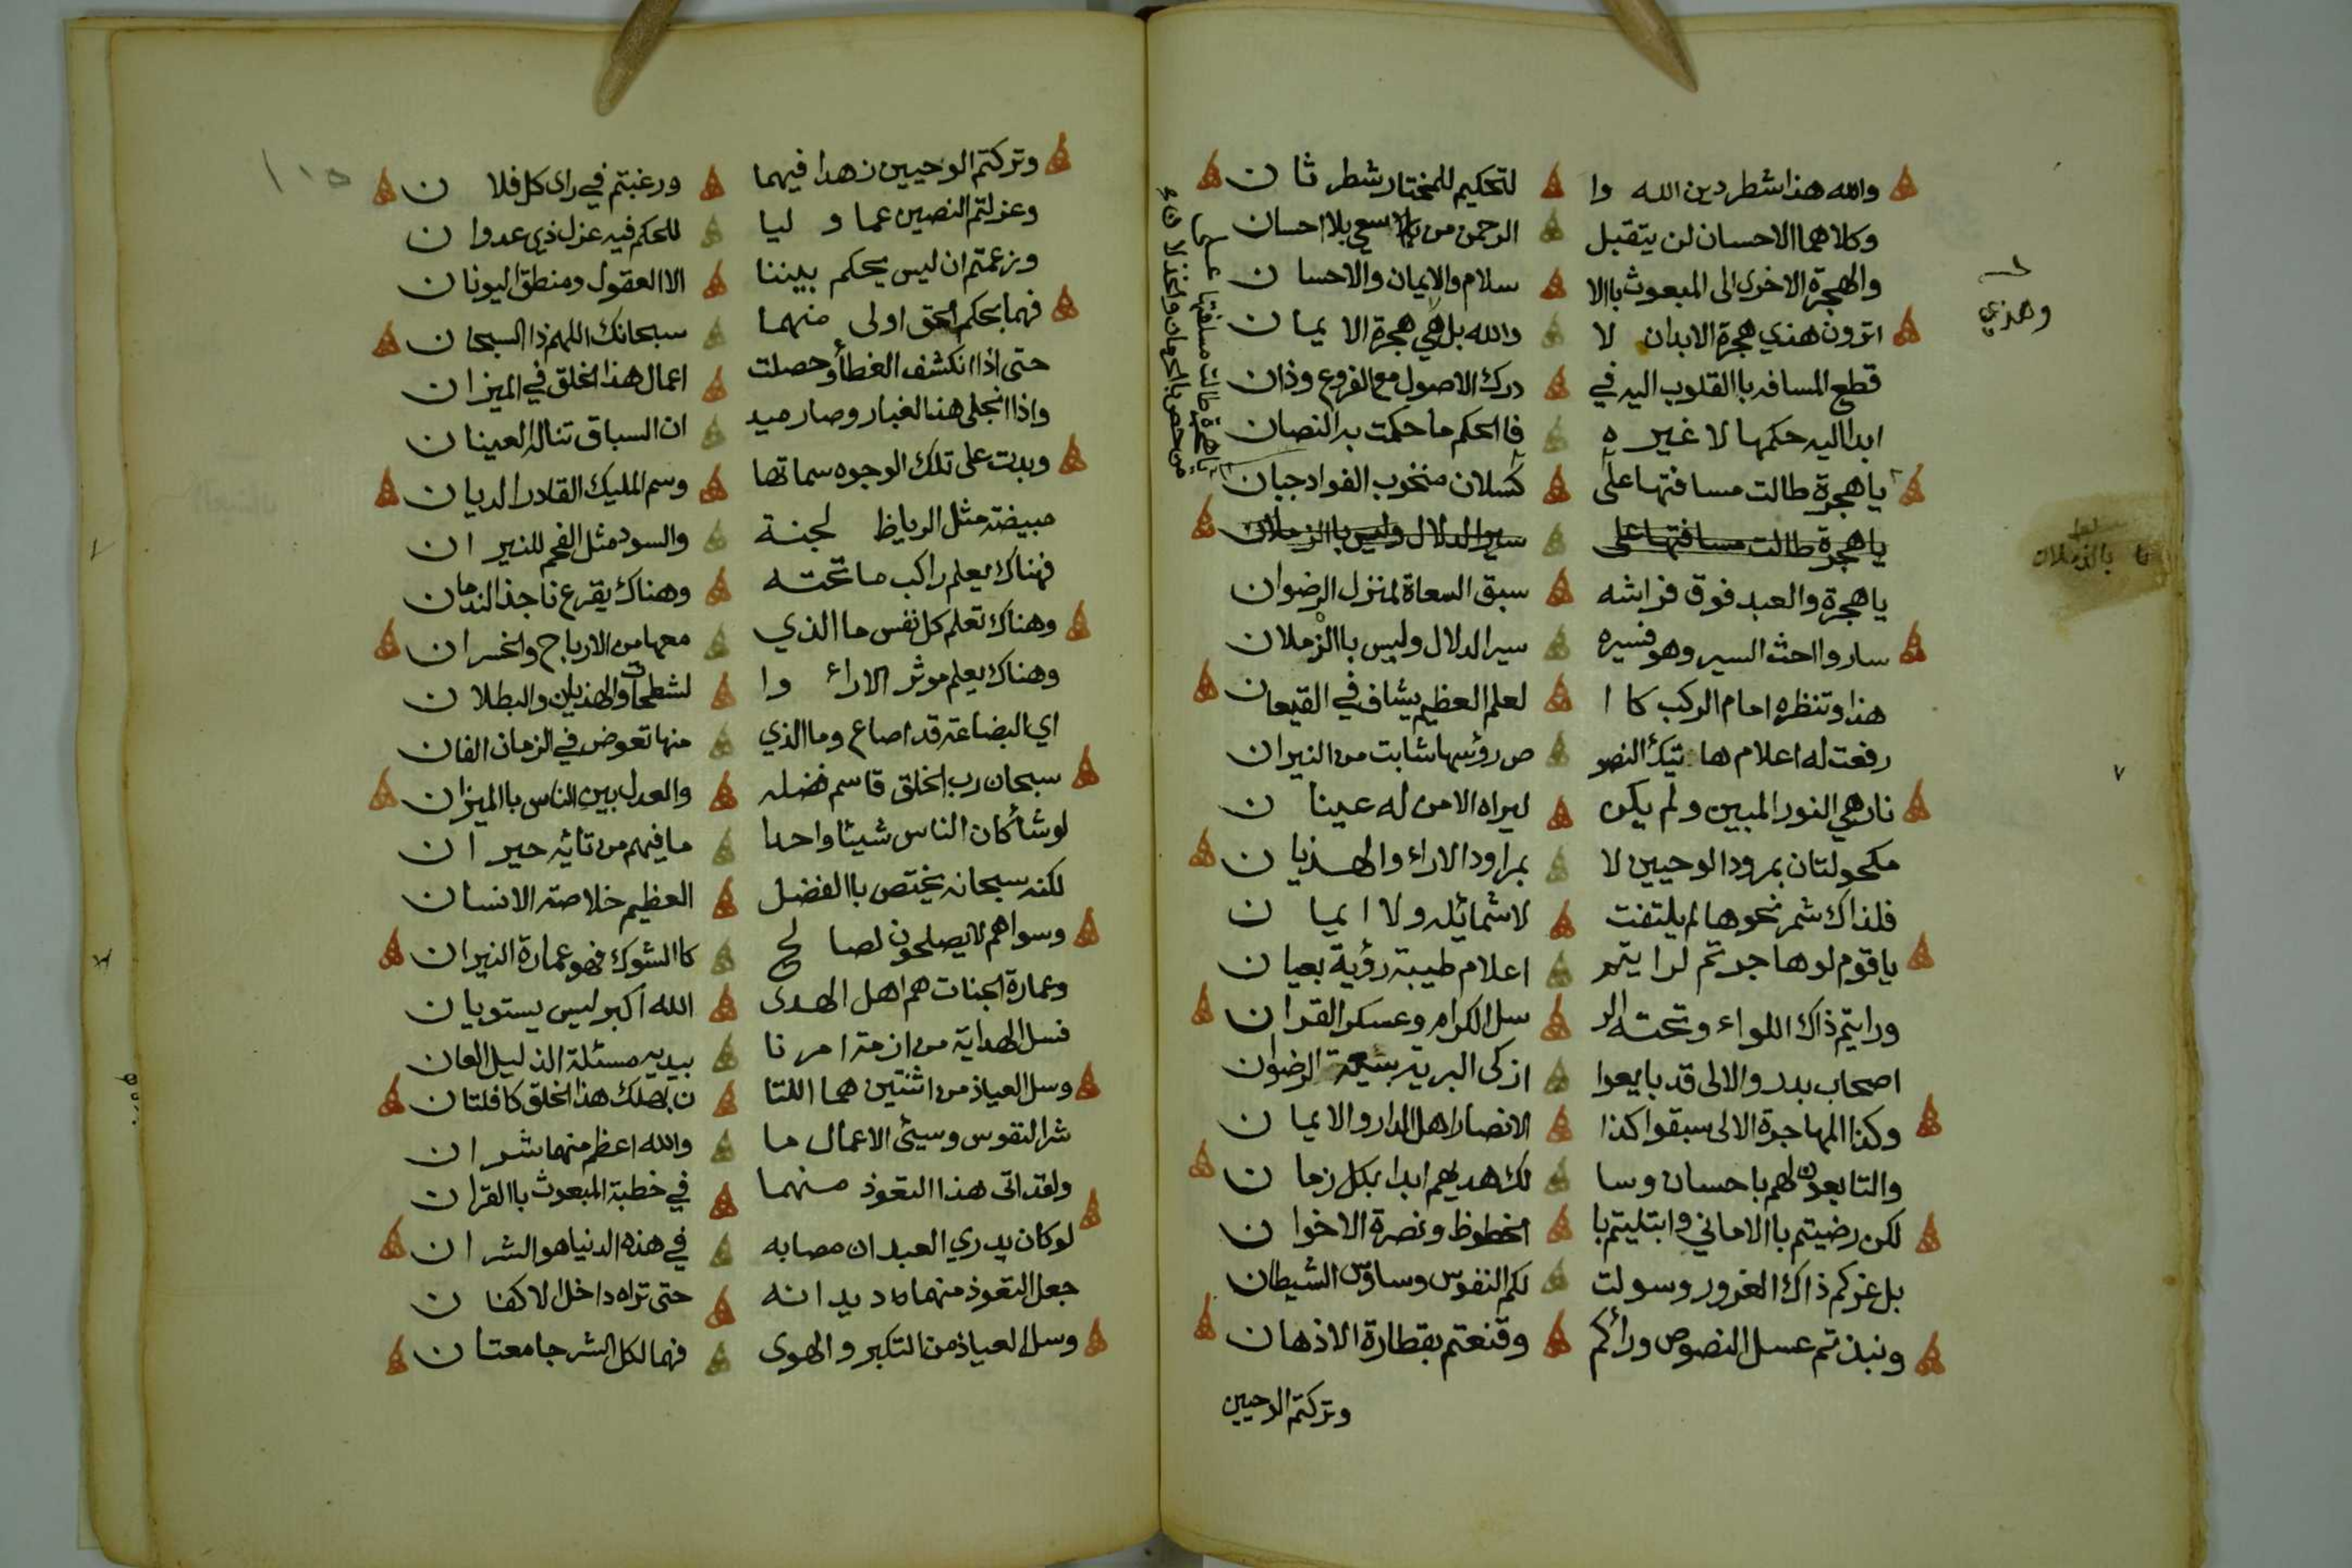 والله هذا شطر دين الله وا لتحكيم للمختار شطر ثان
وكلاهما الاحسان لن يتقبل الرحمن من سعي بلا احسان
والهجرة الاخرى الى المبعوث باالا سلام والايمان والاحسان
اترون هذي هجرة الابدان لا والله بل هي هجرة الايمان
قطع المسافه باالقلوب اليه في درك الاصول مع الفروع وذان
ابدا اليه حكمها لا غيره فاالحكم ما حكمت به النصان
يا هجرة طالت مسافتها على كسلان منخوب الفواد جبان
يا هجرة طالت مسافتها على سير الدلال وليس باالزملان
يا هجرة والعبد فوق فراشه سبق السعاة لمنزل الرضوان
ساروا احث السير وهو فسيره سير الدلال وليس باالزملان
هذا وتنظره امام الركب كاا لعلم العظيم يشاف في القيعان
رفعت له اعلام هاتيك النصو ص رؤسها شابت من النيران
نار هي النور المبين ولم يكن ليراه الا من له عينان
مكحولتان بمرود الوحيين لا بمراود الاراء والهذيان
فلذاك شمر نحوها لم يلتفت لا شمائله ولا ايمان
يا قوم لو هاجرتم لرايتم اعلام طيبة رؤية بعيان
ورايتم ذاك اللواء وتحته الر سل الكرام وعسكر القران
اصحاب بدر والالى قد بايعوا ازكى البرية بيعة الرضوان
وكذا المهاجرة الالى سبقوا كذا الانصار اهل الدار والايمان
والتابعون لهم باحسان وسا لك هديهم ابدا بكل زمان
لكن رضيتم باالاماني وابتليتم با لحظوظ ونصرة الاخوان
بل غركم ذاك الغرور وسولت لكم النفوس وساوس الشيطان
ونبذتم عسل النصوص ورائكم وقنعتم بقطارة الاذهان
وتركتم الوحيين
وهذي
بالذملان
يا هجرة طالت مسافتها على
من خص بالحرمان والخذلان
١١٥
وتركتم الوحيين زهدا فيهما ورغبتم في راى كل فلان
وعزلتم النصين عما وليا للحكم فيه عزل ذي عدوان
وزعمتم ان ليس يحكم بيننا الا العقول ومنطق اليونان
فهما بحكم الحق اولى منهما سبحانك اللهم ذا السبحان
حتى اذا انكشف الغطأ وحصلت اعمال هذا الخلق في الميزان
واذا انجلى هذا الغبار وصار ميد ان السباق تناله العينان
وبدت على تلك الوجوه سماتها وسم المليك القادر الديان
مبيضة مثل الرياظ لجنة والسود مثل الفحم للنيران
فهناك يعلم راكب ما تحته وهناك يقرع ناجذ الندمان
وهناك تعلم كل نفس ما الذي معها من الارباح والخسران
وهناك يعلم موثر الاراء وا لشطحات والهذيان والبطلان
اي البضاعة قد اضاع وما الذي منها تعوض في الزمان الفان
سبحان رب الخلق قاسم فضله والعدل بين الناس باالميزان
لو شأ كان الناس شيئا واحدا ما فيهم من تائه حيران
لكنه سبحانه يختص باالفضل العظيم خلاصة الانسان
وسواهم لا يصلحون لصالح كاالشوك فهو عمارة النيران
وعمارة الجنات هم اهل الهدى الله اكبر ليس يستويان
فسل الهداية من ازمة امرنا بيديه مسئلة الذليل العان
وسل العياذ من اثنتين هما اللتا ن بهلك هذا الخلق كافلتان
شر النفوس وسيئى الاعمال ما والله اعظم منهما شران
ولقد اتى هذا التعوذ منهما في خطبة المبعوث باالقران
لو كان يدري العبد ان مصابه في هذه الدنيا هو الشران
جعل التعوذ منهما ديدانه حتى تراه داخل الاكفان
وسل العياذ من التكبر والهوى فهما لكل الشر جامعتان